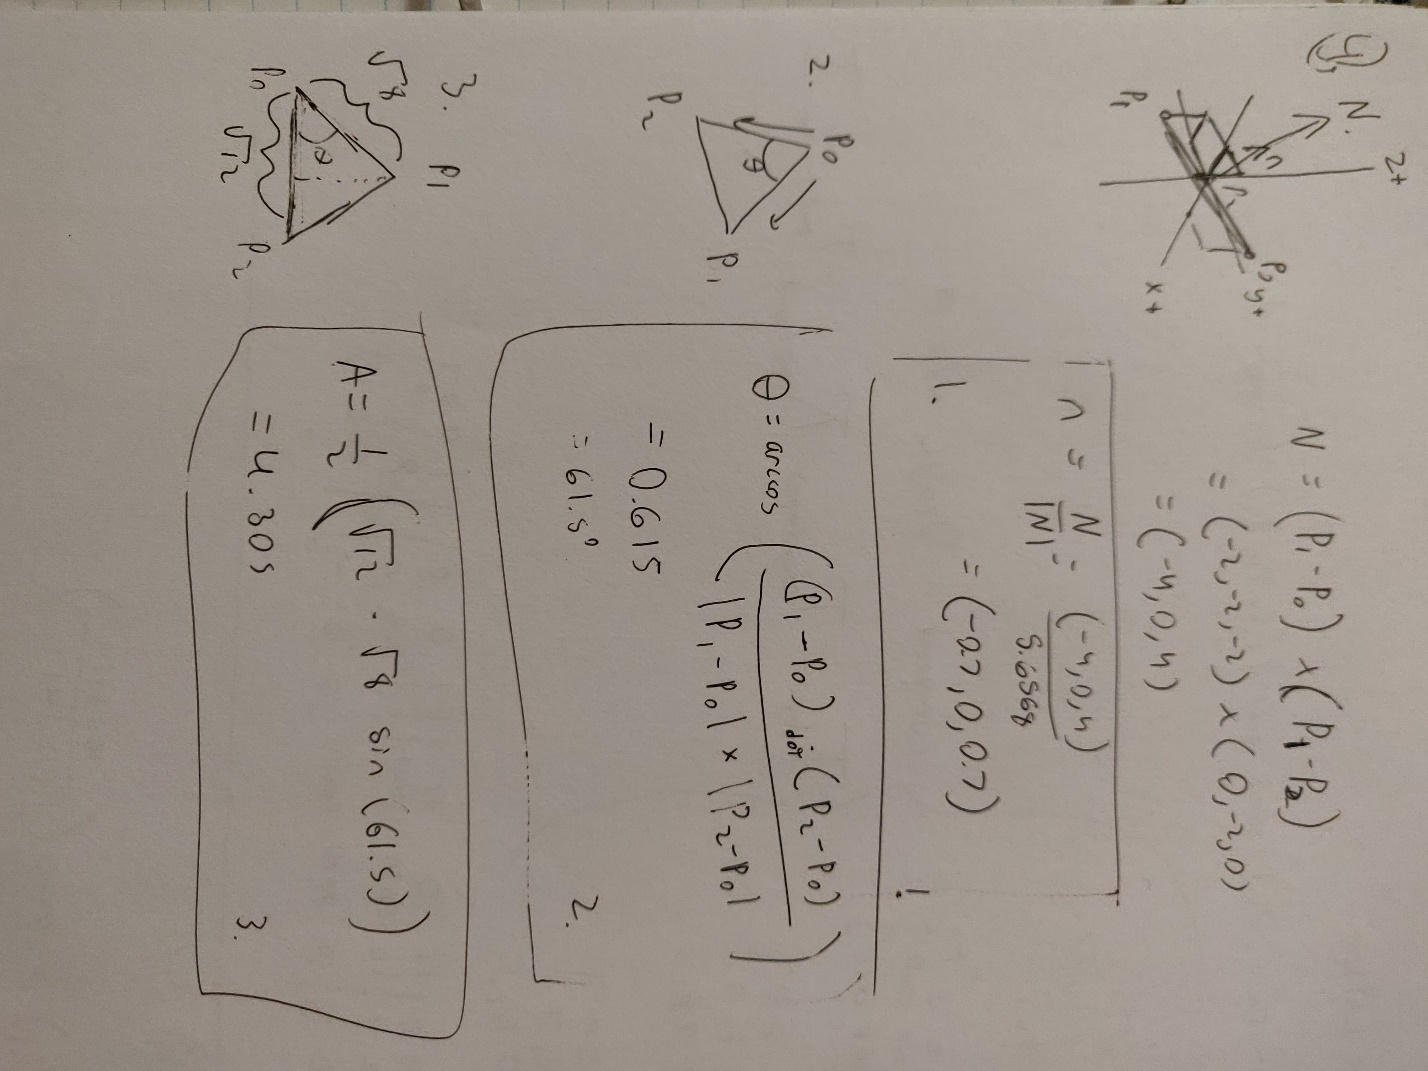 4)
N.
z+
n
P1
P2
y+
x+
N = (P1 - P0) x (P1 - P2)
= (-2,-2,-2) x (0,-2,0)
= (-4,0,4)
n = N/|N| = (-4,0,4)/5.6568
1. = (-0.7,0,0.7)
1.
2.
P0
θ
P2
P1
θ = arccos ( (P1 - P0) dot (P2 - P0) / |P1 - P0| x |P2 - P0| )
= 0.615
= 61.5°
2.
3.
√8
P1
P0
θ
√12
P2
A = 1/2 (√12 · √8 sin (61.5))
= 4.305
3.